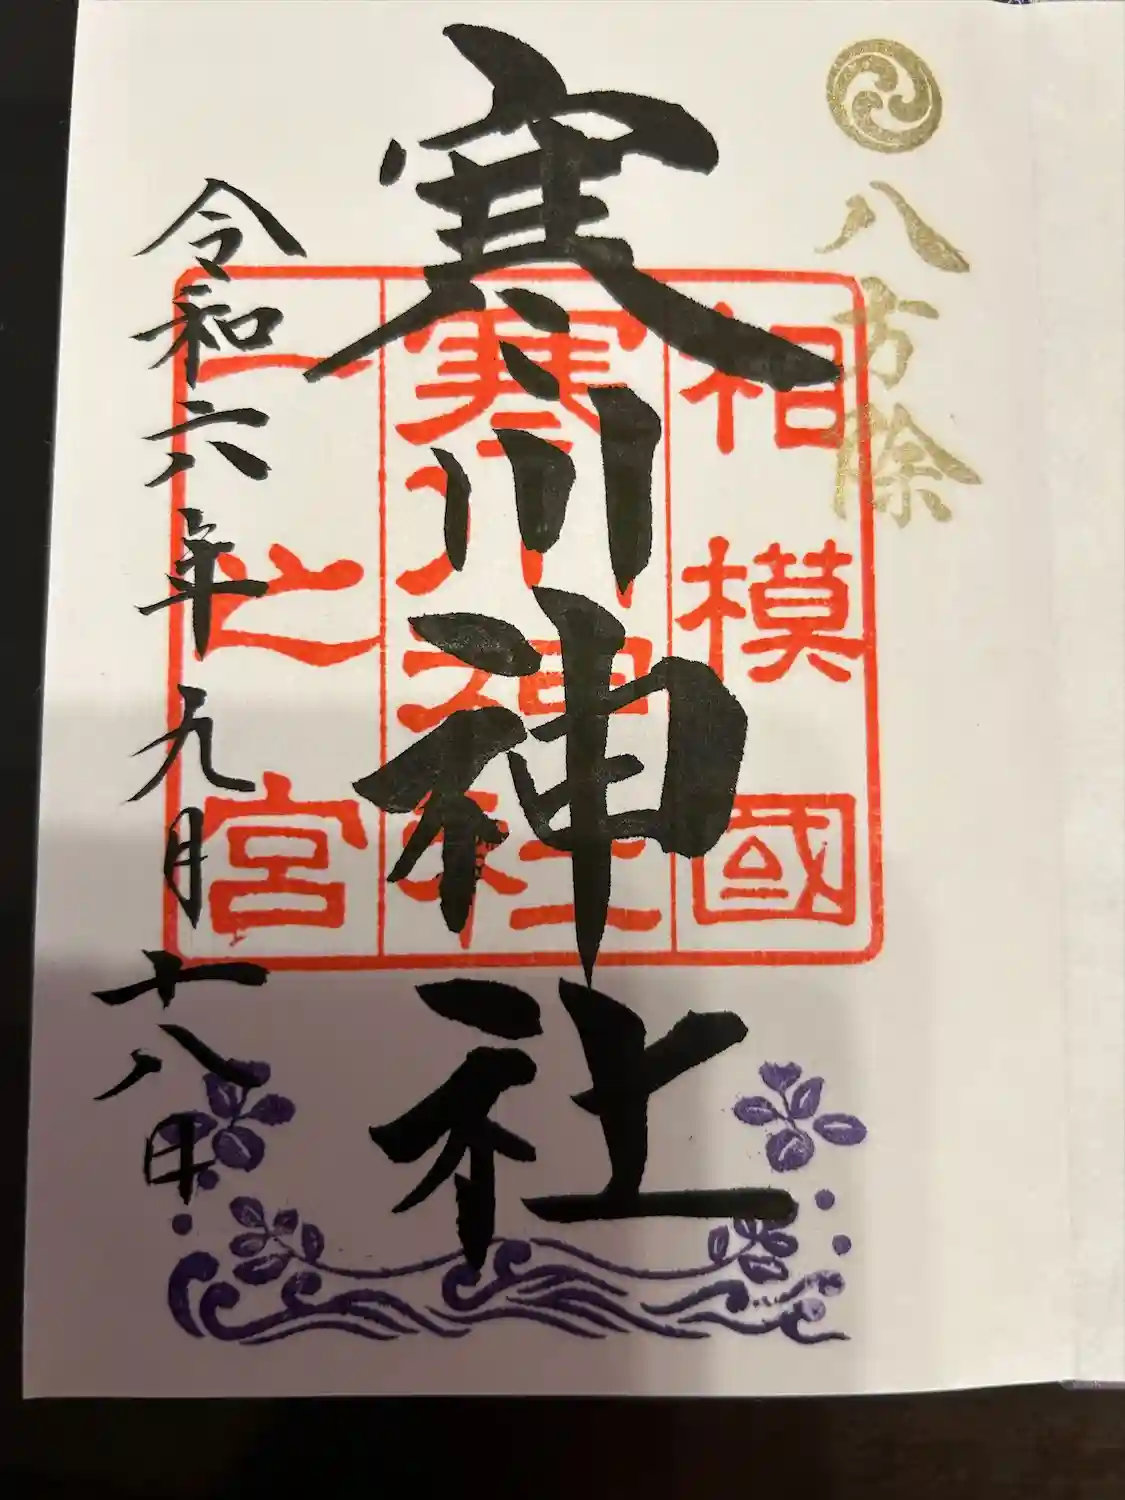 八方除
相模國
寒川神社
一之宮
寒川神社
令和六年九月十八日